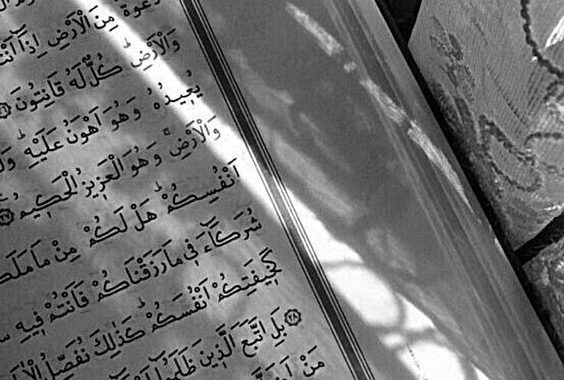 دَعْوَةً مِنَ الْاَرْضِ اِذَٓا
وَالْاَرْضِ كُلٌّ لَهُ قَانِتُونَ
يُعِيدُهُ وَهُوَ اَهْوَنُ عَلَيْهِ
وَالْاَرْضِ وَهُوَ الْعَزِيزُ الْحَكِيمُ
اَنْفُسِكُمْ هَلْ لَكُمْ مِنْ مَا
شُرَكَٓاءَ فِى مَا رَزَقْنَاكُمْ فَاَنْتُمْ فِيهِ
كَخِيفَتِكُمْ اَنْفُسَكُمْ كَذٰلِكَ نُفَصِّلُ
بَلِ اتَّبَعَ الَّذِينَ ظَلَمُٓوا
مَنْ